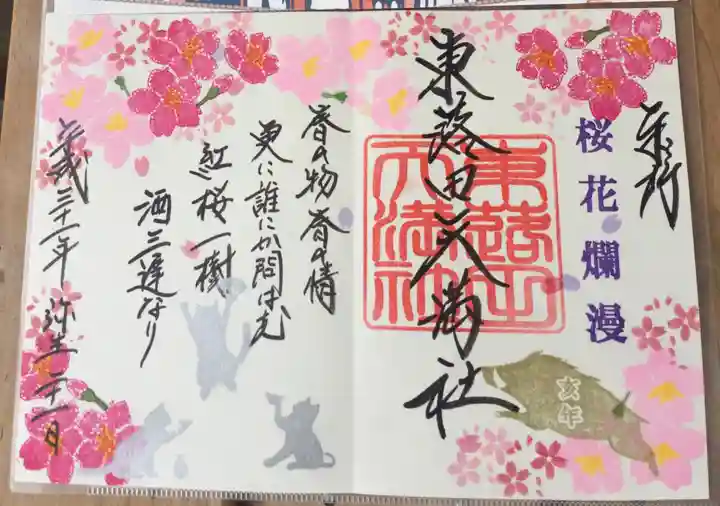 奉拝
桜花爛漫
東蕗田天満社
東蕗田
天満神
亥年
春の物春の情
更に誰にか問はむ
紅桜一樹
酒三遅なり
平成三十一年 弥生二十一日